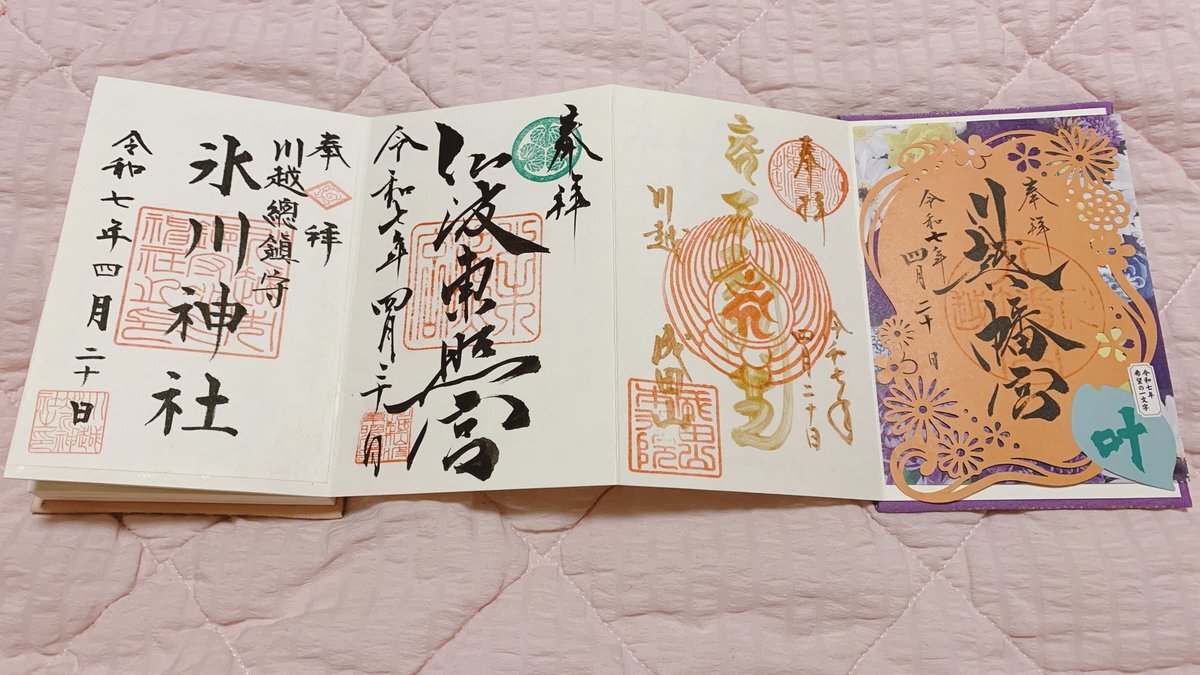 奉拝
川越八幡宮
令和七年
四月二十日
令和七年
希望の一文字
叶
奉拝
令和七年
四月二十日
川越 成田山
奉拝
仙波東照宮
令和七年四月二十日
奉拝
川越總鎮守
氷川神社
令和七年四月二十日